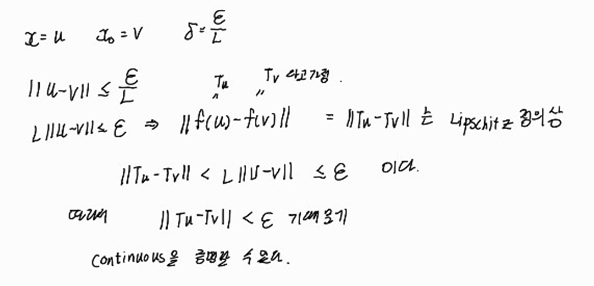 x = u   x₀ = v   δ = ε/L
||u-v|| ≤ ε/L   Tu   Tv 라고가정.
L||u-v|| ≤ ε ⇒ ||f(u)-f(v)|| = ||Tu-Tv|| 는 Lipschitz 정의상
||Tu-Tv|| < L||u-v|| ≤ ε 이다.
따라서 ||Tu-Tv|| < ε 기때문기
Continuous을 증명할 수 있다.